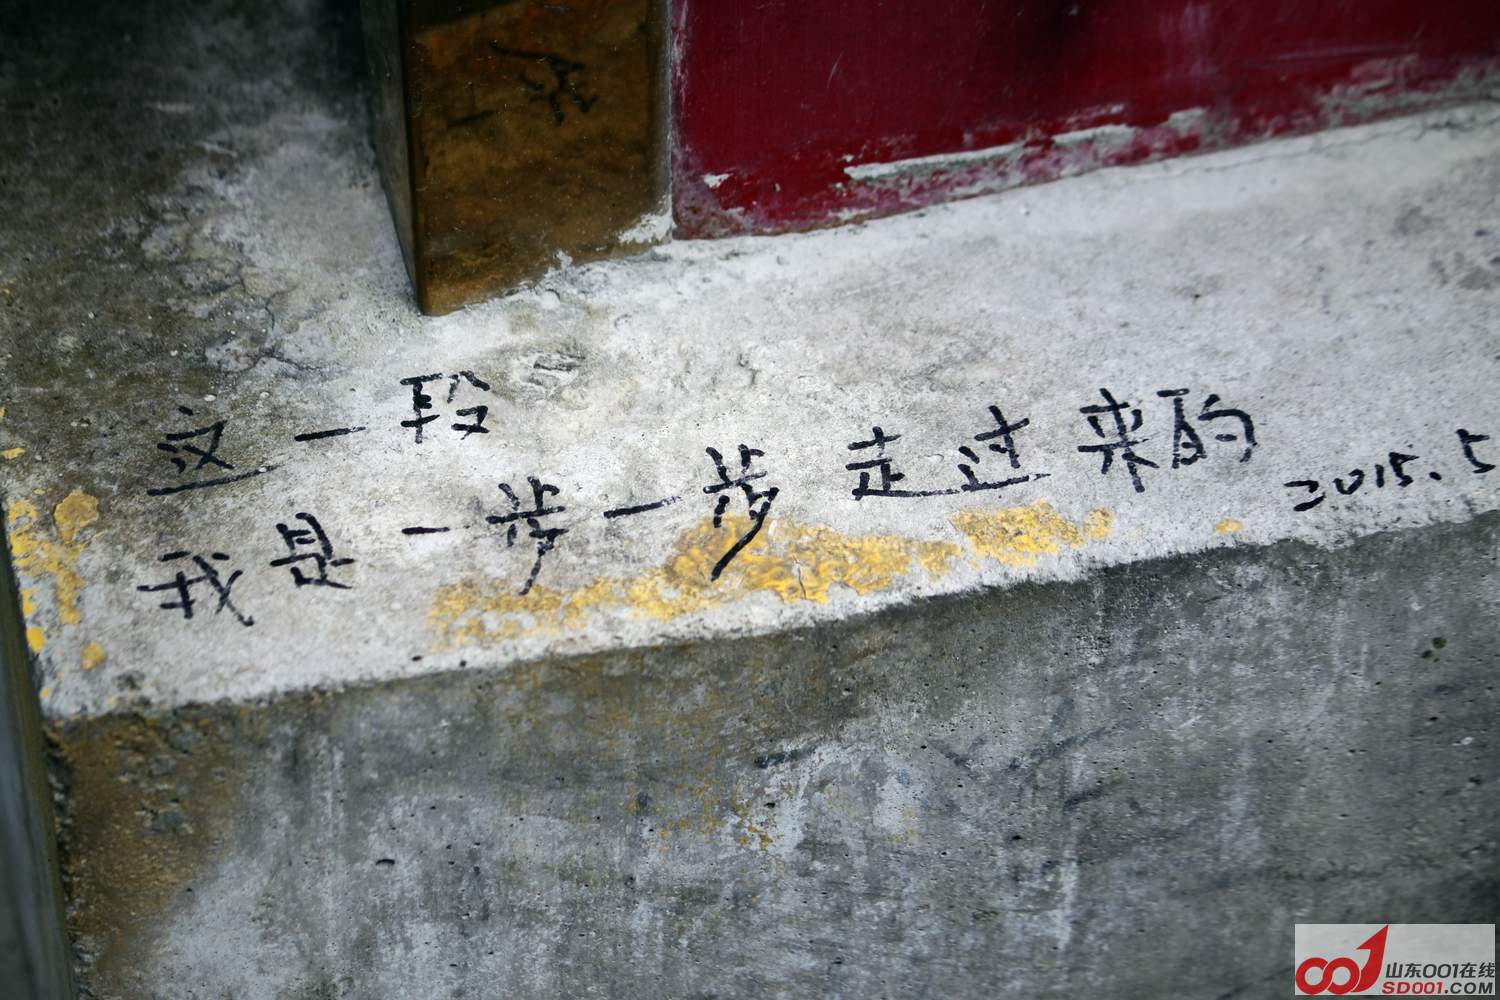 这一段
我是一步一步走过来的
2015.5
山东001在线
SD001.COM